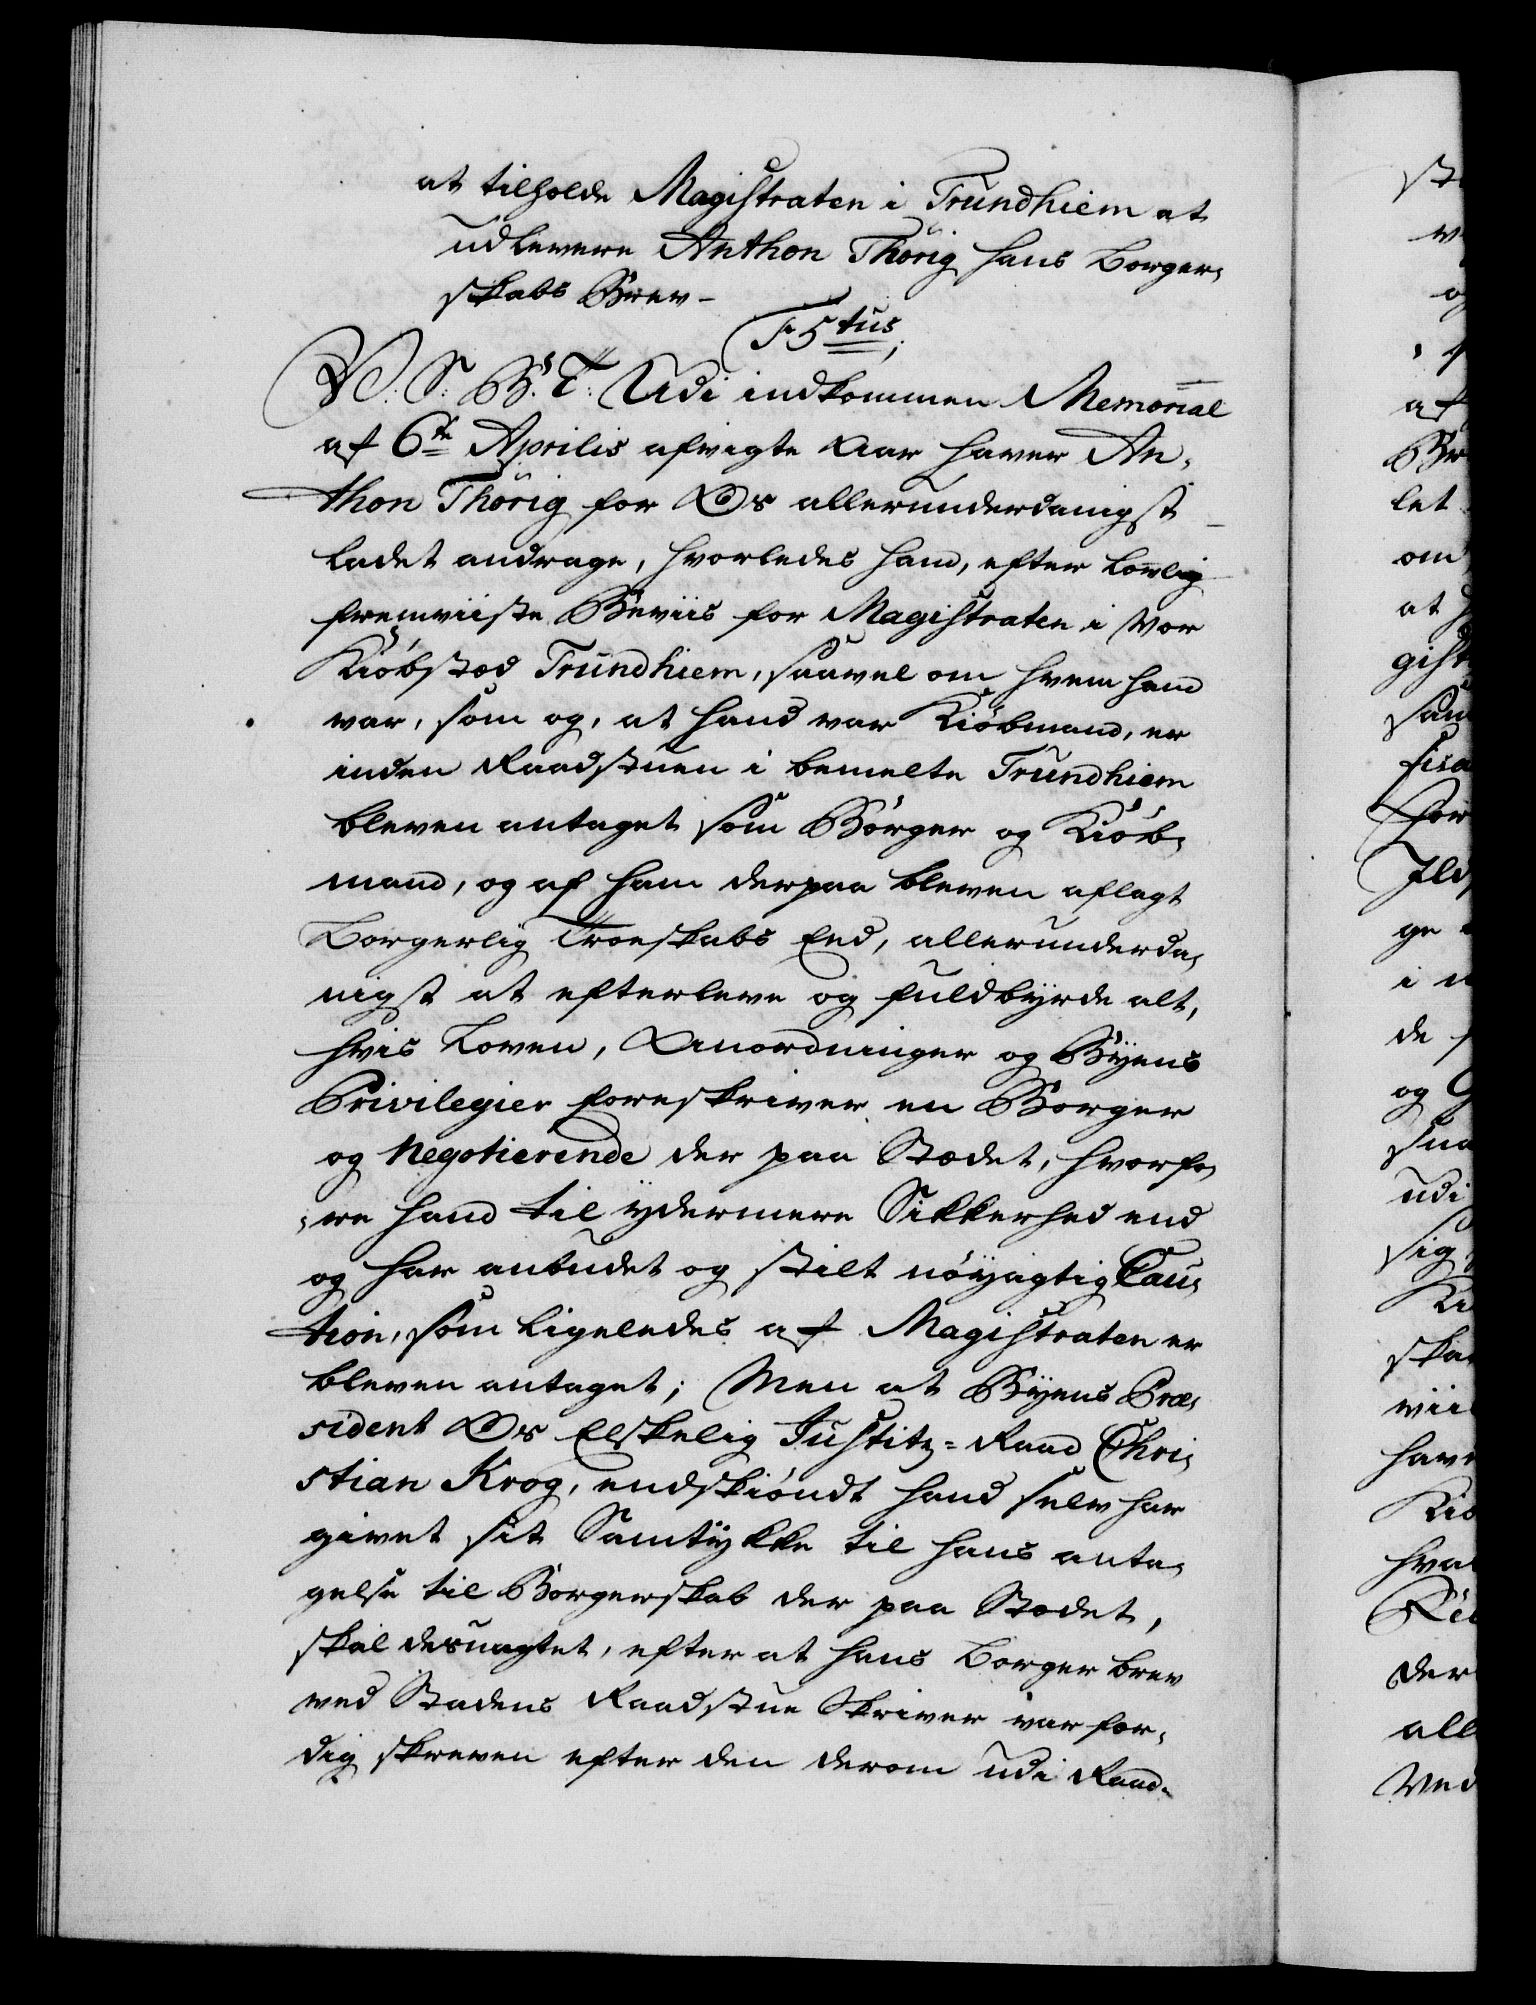 at tilholde Magistraten i Trundhiem at
udlevere Anthon Thörig hans Borger-
skabs Brev-
F 5tus;
W. S. B. T. Udi indkommen Memorial
af 6te Aprilis afvigte Aar haver An-
thon Thörig for Os allerunderdanigst
ladet andrage, hvorledes hand, efter lovlig
fremviiste Beviis for Magistraten i Vor
Kiöbstæd Trundhiem, saavel om hvem hand
var, som og, at hand var Kiöbmand, er
inden Raadstuen i bemelte Trundhiem
bleven antaget som Borger og Kiöb-
mand, og af ham derpaa bleven aflagt
Borgerlig Troeskabs Eed, allerunderda-
nigst at efterleve og fuldbyrde alt,
hvis Loven, Anordninger og Byens
Privilegier foreskriver en Borger
og Negotierende der paa Stædet, hvorfo-
re hand til ydermere Sikkerhed end
og har anbudet og stilt nöyagtig Cau-
tion, som ligeledes af Magistraten er
bleven antaget; Men at Byens Præ-
sident Os Elskelig Justitz-Raad Chri-
stian Krog, endskiöndt hand selv har
givet sit Samtykke til hans anta-
gelse til Borgerskab der paa Stædet,
skal desuagtet, efter at hans Borger brev
ved Stadens Raadstue Skriver var fær-
dig skreven efter den derom udi Raad-